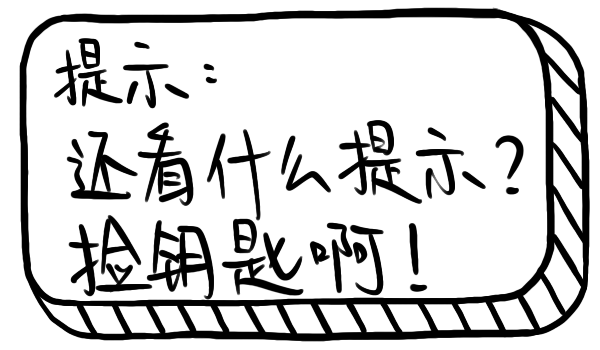 提示：
还看什么提示？
捡钥匙啊！